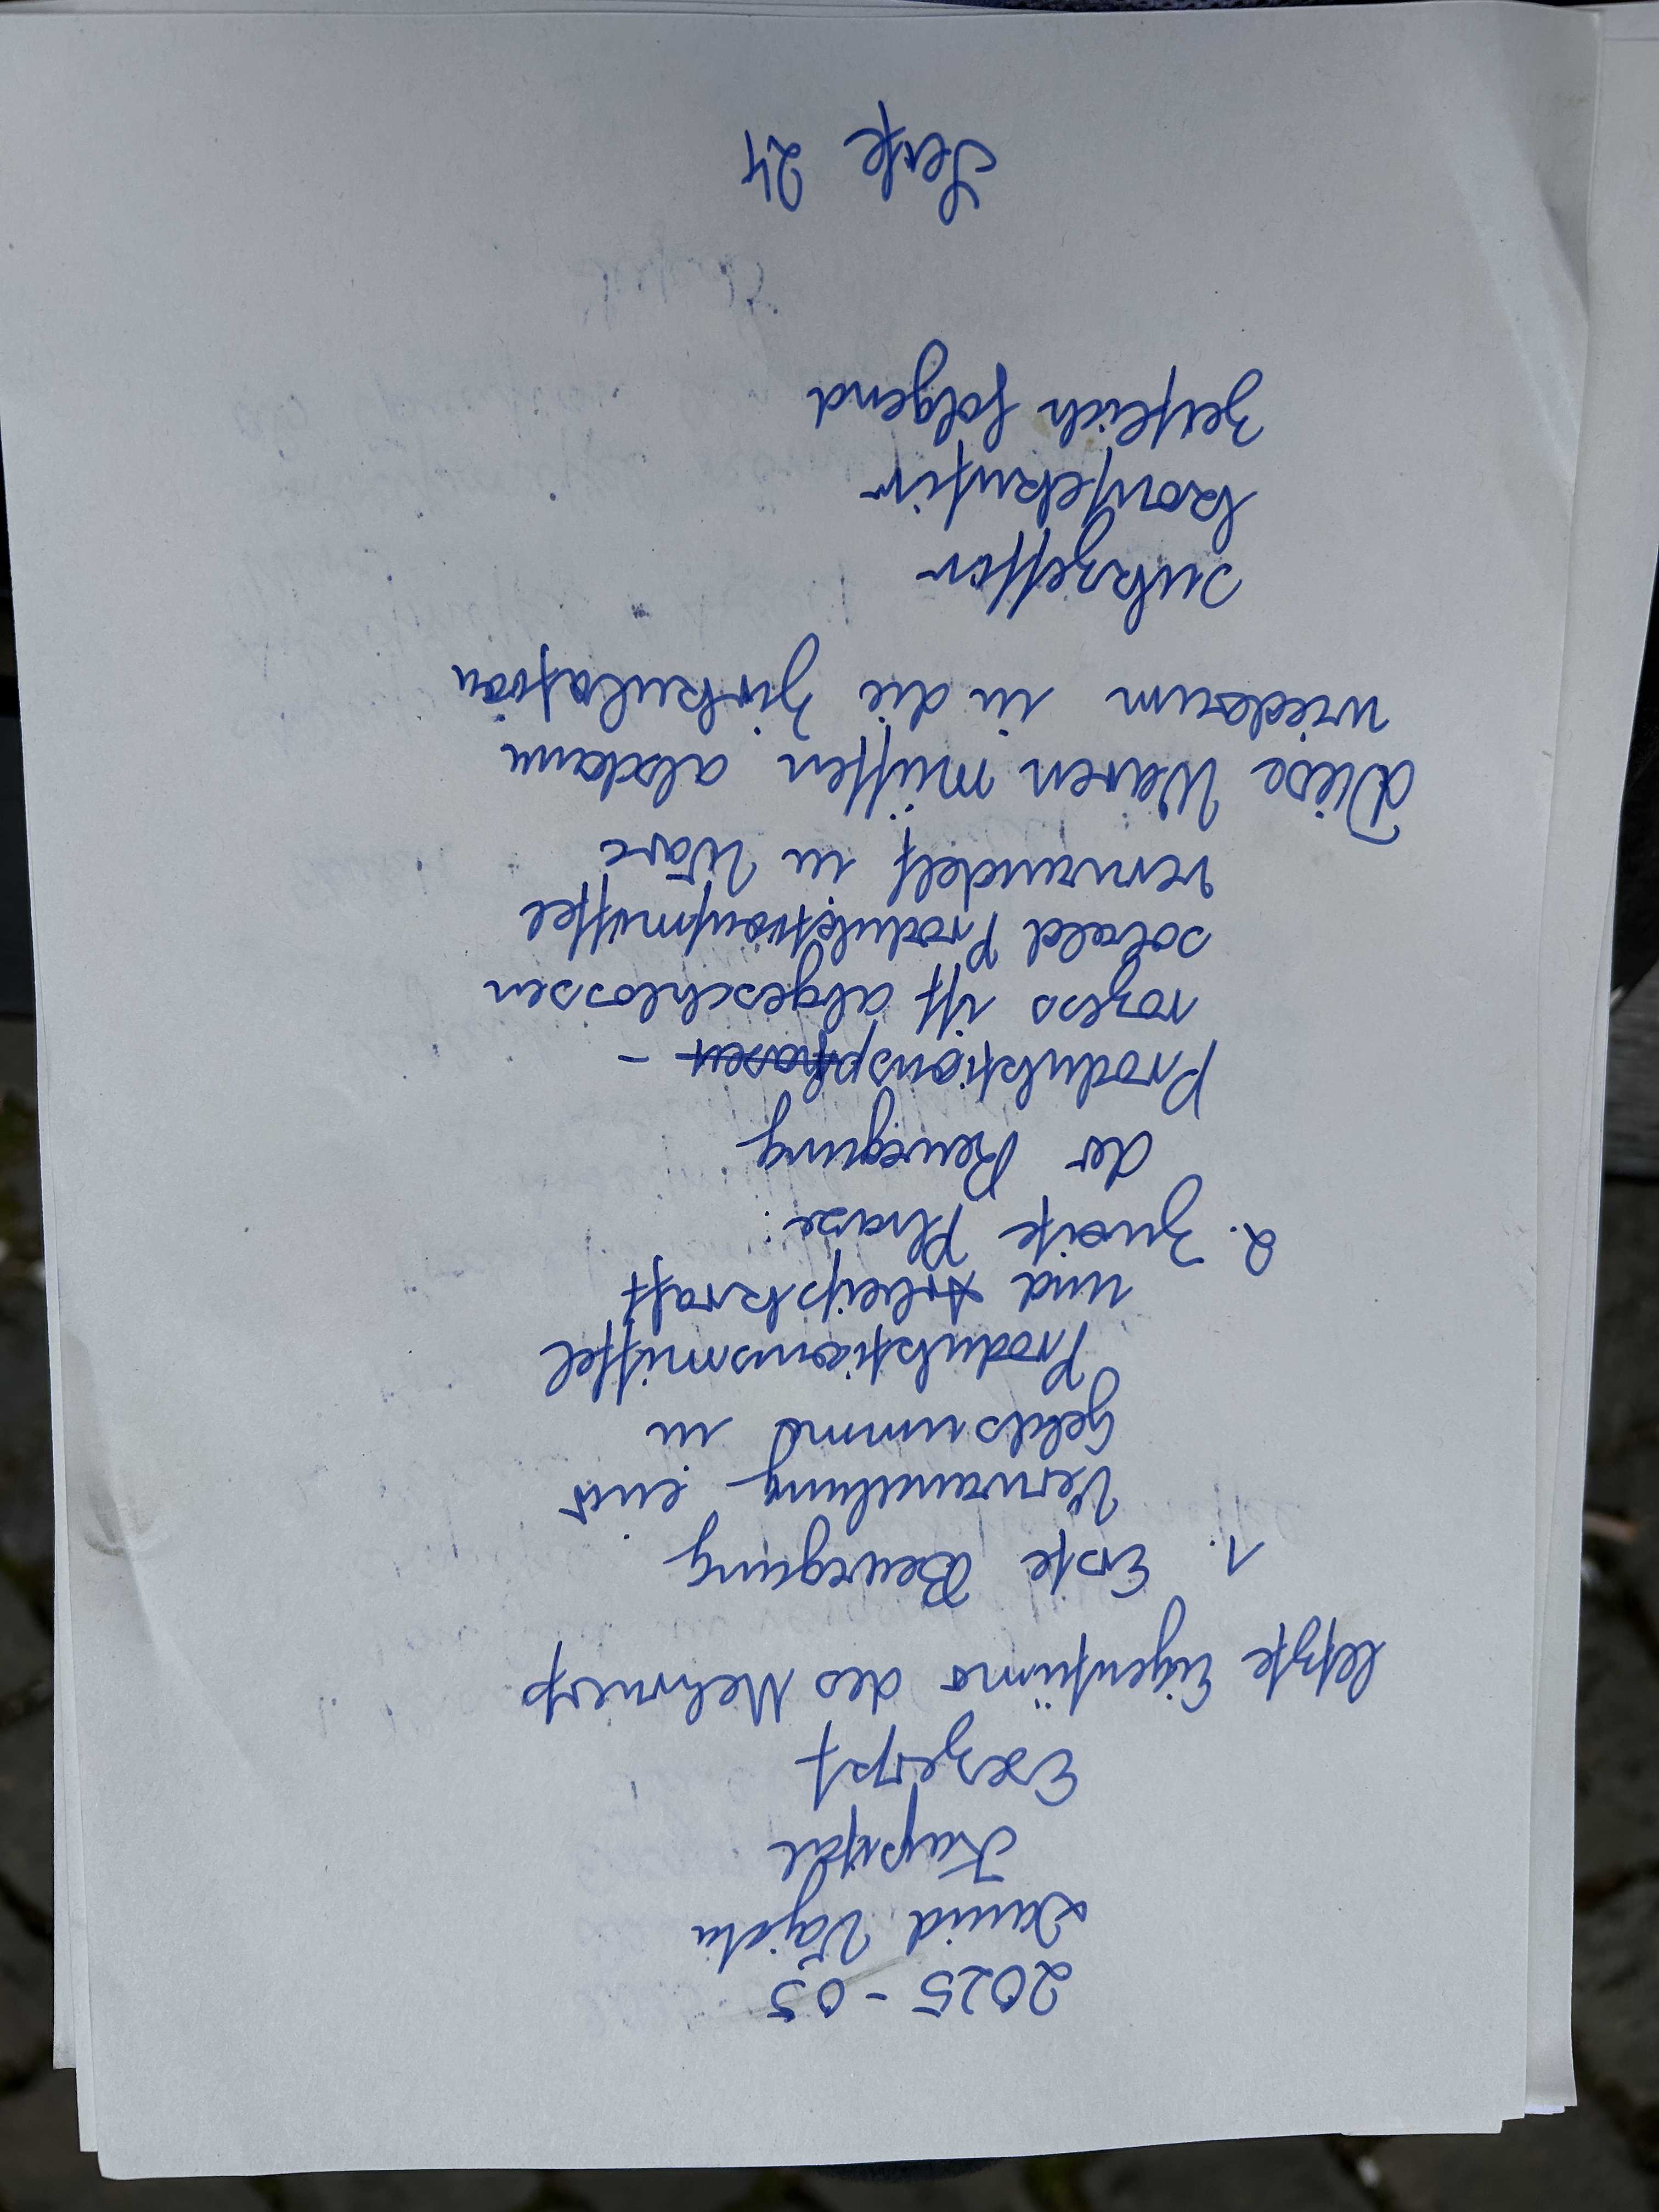 2025-05
David Vajda
Kapital
Exzerpt
letzte Eigentümer des Mehrwert
1. Erste Bewegung
Verwandlung einer
Geldsumme in
Produktionsmittel
und Arbeitskraft
2. Zweite Phase:
der Bewegung
Produktionsphasen -
rozess ist abgeschlossen
sobald Produktionsmittel
verwandelt in Ware
Diese Waren müssen alsdann
wiederum in die Zirkulation
sukzessiv
konsekutiv
zeitlich folgend
Seite 24